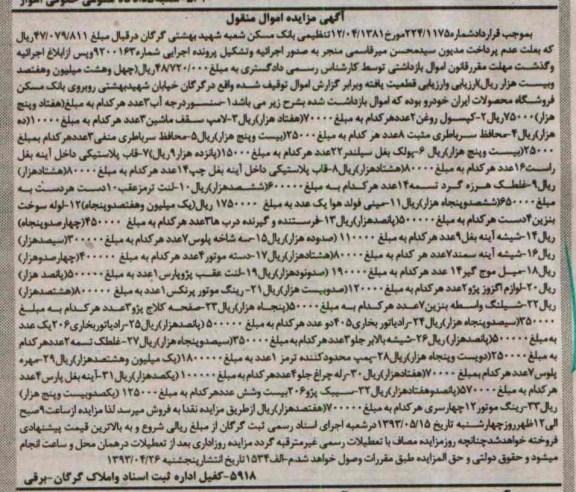 آگهی مزایده اموال منقول
بموجب قراردادشماره۲۲۴/۱۱۷۵مورخ۱۲/۰۴/۱۳۸۱تنظیمی بانک مسکن شعبه شهید بهشتی گرگان درقبال مبلغ ۴۷/۰۷۹/۸۱۱ریال
که بعلت عدم پرداخت مدیون سیدمحسن میرقاسمی منجر به صدور اجرائیه وتشکیل پرونده اجرایی شماره۹۲۰۰۱۶۳وپس ازابلاغ اجرائیه
وگذشت مهلت مقررقانون اموال بازداشتی توسط کارشناس رسمی دادگستری به مبلغ۴۸/۷۲۰/۰۰۰ریال(چهل وهشت میلیون وهفتصد
وبیست هزار ریال)ارزیابی وارزیابی قطعیت یافته وبرابر گزارش اموال توقیف شده واقع درگرگان خیابان شهیدبهشتی روبروی بانک مسکن
فروشگاه محصولات ایران خودرو بوده که اموال بازداشت شده بشرح زیر می باشد۱-سنسوردرجه آب۳عدد هرکدام به مبلغ(هفتاد وپنج
هزار)۷۵۰۰۰ریال۲-کپسول روغن۲عددهرکدام به مبلغ۷۰۰۰۰(هفتاد هزار)ریال۳-لامپ سقف ماشین۲عدد هرکدام به مبلغ۱۰۰۰۰(ده
هزار)ریال۴-محافظ سرباطری مثبت ۸عدد هرکدام به مبلغ۲۵۰۰۰(بیست وپنج هزار)ریال۵-محافظ سرباطری منفی۳عددهرکدام بمبلغ
۲۵۰۰۰(بیست وپنج هزار)ریال ۶-پولک بغل سیلندر۲۲عدد هرکدام به مبلغ۱۵۰۰۰(پانزده هزار)ریال)۷-قاب پلاستیکی داخل آینه بغل
راست۱۶عدد هرکدام به مبلغ ۸۰۰۰۰(هشتادهزار)ریال۸-قاب پلاستیکی داخل آینه بغل چپ۱۴عدد هرکدام به مبلغ ۸۰۰۰۰(هشتادهزار)
ریال۹-غلطک هرزه گرد تسمه۱۴عدد هرکدام به مبلغ۶۰۰۰۰۰(ششصدهزار)ریال۱۰-لنت ترمزعقب۱۰دست هردست به
مبلغ۶۵۰۰۰۰(ششصدوپنجاه هزار)ریال۱۱-مینی فولد هوا یک عدد به مبلغ ۱۷۵۰۰۰۰ ریال(یک میلیون وهفتصدوپنجاه)۱۲-لوله سوخت
بنزین۴دست هرکدام به مبلغ۵۰۰۰۰۰(پانصدهزار)ریال۱۳-فرستنده و گیرنده درب ها۳عدد هرکدام به مبلغ ۴۵۰۰۰۰(چهارصدوپنجاه)
ریال۱۴-شیشه آینه بغل۹عدد هرکدام به مبلغ ۱۱۰۰۰۰ (صدوده هزار)ریال۱۵-سه شاخه پلوس۷عدد هرکدام به مبلغ۳۰۰۰۰۰(سیصدهزار)
ریال۱۶-شیشه آینه سمند۷عدد هرکدام به مبلغ۸۰۰۰۰(هشتادهزار)ریال۱۷-دسته موتور۴عدد هرکدام به مبلغ ۴۰۰۰۰۰(چهارصدهزار)
ریال۱۸-میل موج گیر۱۴ عدد هرکدام به مبلغ۱۹۰۰۰۰ (صدونودهزار)ریال۱۹-لنت عقب پژوپارس۱عدد به مبلغ۵۰۰۰۰۰(پانصد هزار)
ریال۲۰-لوازم اگزوز پژو۲عدد هرکدام به مبلغ۱۲۰۰۰۰(صدوبیست هزار)ریال۲۱-رینگ موتور پرنکس۱عدد به مبلغ۸۰۰۰۰۰(هشتصدهزار)
ریال۲۲-شیلنگ واسطه بنزین۷عدد هرکدام به مبلغ۵۰۰۰۰(پنجاه هزار)۲۳-صفحه کلاج پژو۳عدد هرکدام به مبلغ
۳۵۰۰۰۰(سیصدوپنجاه هزار)ریال۲۴-رادیاتور بخاری۴۰۵دو عدد هرکدام به مبلغ ۵۰۰۰۰۰(پانصدهزار)ریال۲۵-رادیاتوربخاری۲۰۶یک عدد
به مبلغ۵۰۰۰۰۰(پانصدهزار)ریال۲۶-شیشه بالابر جلو۳عددهرکدام به مبلغ۳۵۰۰۰۰(سیصدوپنجاه هزار)ریال۲۷-غلطک تسمه۲عددهرکدام
به مبلغ۲۵۰۰۰۰(دویست وپنجاه هزار)ریال۲۸-پمپ محدودکننده ترمز ۱عدد به مبلغ۱۸۰۰۰۰۰(یک میلیون وهشتصدهزار)ریال۲۹-مهره
پلوس۷عدد هرکدام بمبلغ ۷۰۰۰۰(هفتادهزار)ریال۳۰-رله چراغ جلو۴عددهرکدام به مبلغ۱۰۰۰۰۰(یکصدهزار)ریال۳۱-آینه بغل پارس۴عدد
هرکدام به مبلغ۵۷۰۰۰۰(پانصدوهفتادهزار)ریال۳۲-سیبک پژو۲۰۶بیست وشش عددهرکدام به مبلغ۱۲۵۰۰۰ (یکصدوبیست وپنج هزار)
ریال۳۳-رینگ موتور۱۲چهارسری هرکدام به مبلغ۷۰۰۰۰۰(هفتصدهزار)ریال ازطریق مزایده نقدا به فروش میرسد لذا مزایده ازساعت۹صبح
الی۱۲ظهرروزچهارشنبه تاریخ ۱۳۹۳/۰۵/۱۵درشعبه اجرای اسناد رسمی ثبت گرگان از مبلغ ریالی شروع و به بالاترین قیمت پیشنهادی
فروخته خواهدشدچنانچه روزمزایده مصاف با تعطیلات رسمی غیرمترقبه گردد مزایده روزاداری بعد از تعطیلات درهمان محل و ساعت انجام
میشود و حقوق دولتی و حق المزایده طبق مقررات وصول خواهد شد.م-الف۱۵۳۴تاریخ انتشارپنجشنبه ۱۳۹۳/۰۴/۲۶
۵۹۱۸-کفیل اداره ثبت اسناد واملاک گرگان-برقی